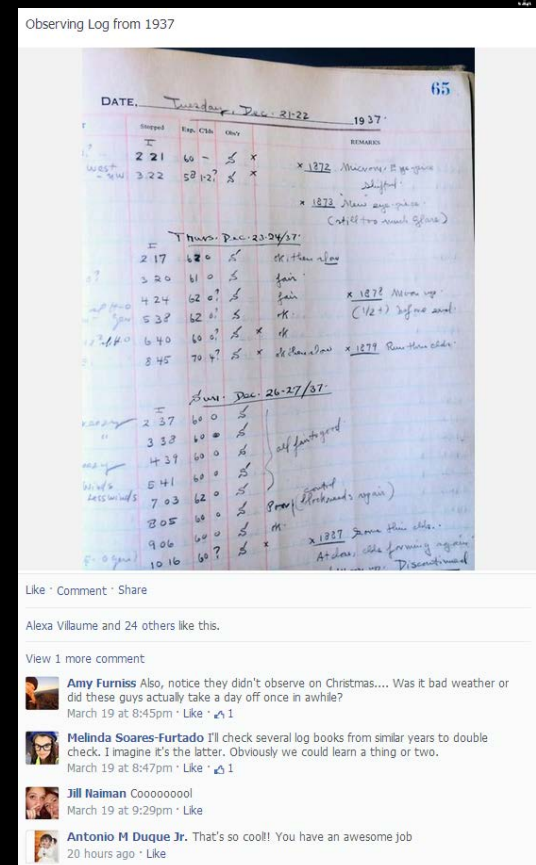 Observing Log from 1937
65
DATE, Tuesday, Dec. 21-22 1937.
Stopped Exp. Clds Obs'r REMARKS
2 21 60 - x x 1872
west 3 22 58 1-2? x shifted.
x 1873 "New" eye-piece
(still too much glare)
Thurs. Dec. 23-24/37.
2 17 62 0
3 20 61 0 fair
4 24 62 0? fair x 1878
5 38 62 0? ok (1/2+) before end.
6 40 60 0? x ok
8 45 70 4? x x 1879 Run thru clds.
Sun. Dec. 26-27/37.
2 37 60 0
3 38 60 0
4 39 60 0 all fair to good
5 41 60 0
7 03 62 0 Poor (control again)
8 05 60 0 ok.
9 06 60 0 x 1887 Some thin clds..
10 16 60 ? x At clos, clds forming again
Discontinued
Like · Comment · Share
Alexa Villaume and 24 others like this.
View 1 more comment
Amy Furniss Also, notice they didn't observe on Christmas.... Was it bad weather or
did these guys actually take a day off once in awhile?
March 19 at 8:45pm · Like · 1
Melinda Soares-Furtado I'll check several log books from similar years to double
check. I imagine it's the latter. Obviously we could learn a thing or two.
March 19 at 8:47pm · Like · 1
Jill Naiman Cooooooool
March 19 at 9:29pm · Like
Antonio M Duque Jr. That's so cool!! You have an awesome job
20 hours ago · Like